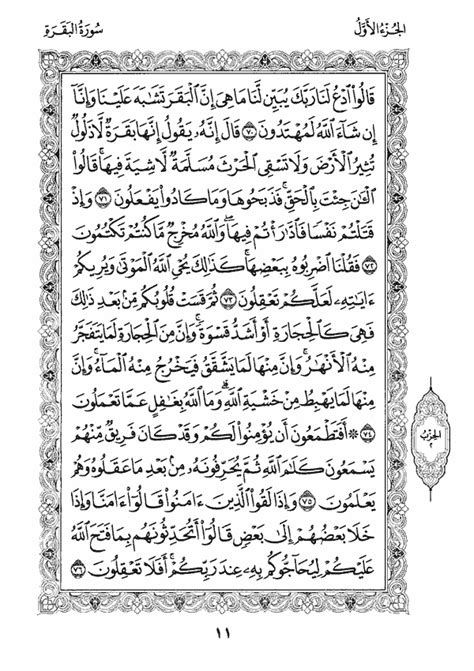 الجُزْءُ الأَوَّلُ سُورَةُ البَقَرَةِ
قَالُوا۟ ٱدْعُ لَنَا رَبَّكَ يُبَيِّن لَّنَا مَا هِىَ إِنَّ ٱلْبَقَرَ تَشَٰبَهَ عَلَيْنَا وَإِنَّآ
إِن شَآءَ ٱللَّهُ لَمُهْتَدُونَ ٧٠ قَالَ إِنَّهُۥ يَقُولُ إِنَّهَا بَقَرَةٌ لَّا ذَلُولٌ
تُثِيرُ ٱلْأَرْضَ وَلَا تَسْقِى ٱلْحَرْثَ مُسَلَّمَةٌ لَّا شِيَةَ فِيهَا ۚ قَالُوا۟
ٱلْـَٰٔنَ جِئْتَ بِٱلْحَقِّ ۚ فَذَبَحُوهَا وَمَا كَادُوا۟ يَفْعَلُونَ ٧١ وَإِذْ
قَتَلْتُمْ نَفْسًا فَٱدَّٰرَْٰٔتُمْ فِيهَا ۖ وَٱللَّهُ مُخْرِجٌ مَّا كُنتُمْ تَكْتُمُونَ
٧٢ فَقُلْنَا ٱضْرِبُوهُ بِبَعْضِهَا ۚ كَذَٰلِكَ يُحْىِ ٱللَّهُ ٱلْمَوْتَىٰ وَيُرِيكُمْ
ءَايَٰتِهِۦ لَعَلَّكُمْ تَعْقِلُونَ ٧٣ ثُمَّ قَسَتْ قُلُوبُكُم مِّنۢ بَعْدِ ذَٰلِكَ
فَهِىَ كَٱلْحِجَارَةِ أَوْ أَشَدُّ قَسْوَةً ۚ وَإِنَّ مِنَ ٱلْحِجَارَةِ لَمَا يَتَفَجَّرُ
مِنْهُ ٱلْأَنْهَٰرُ ۚ وَإِنَّ مِنْهَا لَمَا يَشَّقَّقُ فَيَخْرُجُ مِنْهُ ٱلْمَآءُ ۚ وَإِنَّ
مِنْهَا لَمَا يَهْبِطُ مِنْ خَشْيَةِ ٱللَّهِ ۗ وَمَا ٱللَّهُ بِغَٰفِلٍ عَمَّا تَعْمَلُونَ
٧٤ ۞ أَفَتَطْمَعُونَ أَن يُؤْمِنُوا۟ لَكُمْ وَقَدْ كَانَ فَرِيقٌ مِّنْهُمْ
يَسْمَعُونَ كَلَٰمَ ٱللَّهِ ثُمَّ يُحَرِّفُونَهُۥ مِنۢ بَعْدِ مَا عَقَلُوهُ وَهُمْ
يَعْلَمُونَ ٧٥ وَإِذَا لَقُوا۟ ٱلَّذِينَ ءَامَنُوا۟ قَالُوٓا۟ ءَامَنَّا وَإِذَا
خَلَا بَعْضُهُمْ إِلَىٰ بَعْضٍ قَالُوٓا۟ أَتُحَدِّثُونَهُم بِمَا فَتَحَ ٱللَّهُ
عَلَيْكُمْ لِيُحَآجُّوكُم بِهِۦ عِندَ رَبِّكُمْ ۚ أَفَلَا تَعْقِلُونَ ٧٦
الحِزْبُ
٢
١١